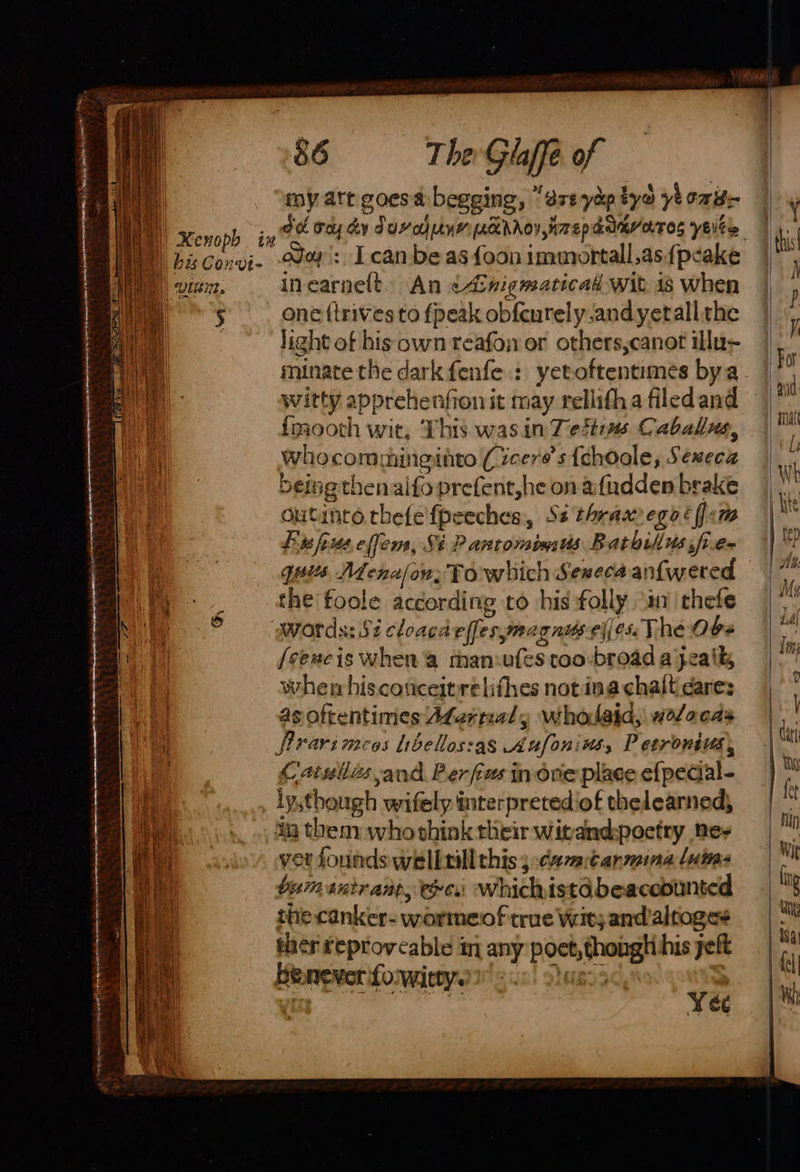 86 The Glaſſe of
my art goes a begging, ὥτε γὰρ ἐγὼ γὲ σπυ-
Xenoph in
his Convi-
vium.
δάσαι ἂν δυναίμην μᾶλλον, ἤπερ ἀθάνατος γενέ-
σθαι : I can be as ſoon immortall, as ſpeake
in earneſt. An Ænigmaticall wit is when
5 one ſtrives to ſpeak obſcurely, and yet all the
light of his own reaſon or others, canot illu-
minate the dark ſenſe : yet oftentimes by a
witty apprehenſion it may relliſh a filed and
ſmooth wit, This was in Teſtius Caballus,
who comming into Cicero's ſchoole, Seneca
being then alſo preſent, he on a ſudden brake
out into theſe ſpeeches, Si thrax ego eſſem
Fuſius eſſem, Si Pantomimus Bathillus, ſi e-
quus Menaſon; To which Seneca anſwered
the foole according to his folly in theſe
6 words: Si cloaca eſſes, magnus eſſes. The Obs-
ſcene is when a man uſes too broad a jeaſt,
when his conceit reliſhes not in a chaſt eare:
as oftentimes Martial, who ſaid,
libellos: as Auſonius, Petronius,
Catullus, and Perſius in one place eſpecial-
ly, though wiſely interpreted of the learned,
in them who think their wit and poetry ne-
ver ſounds well till this; cum carmina lum-
bum intrant, &c. which is to be accounted
the canker-worme of true wit, and altoge-
ther reproveable in any poet, though his jeſt
be never ſo witty.
Yet